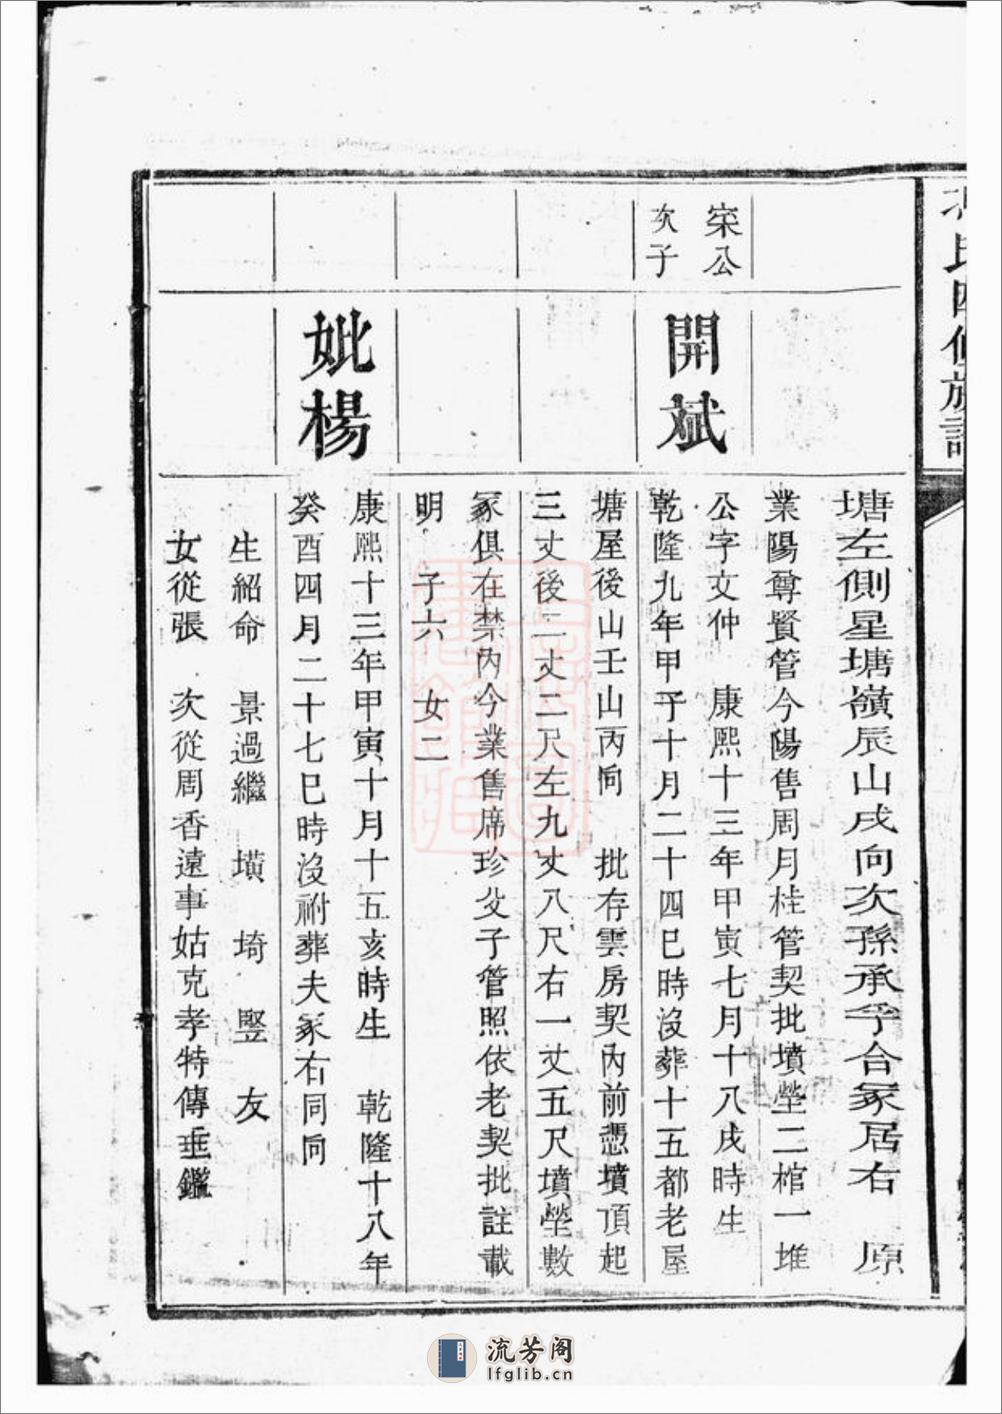 氏四修族譜
塘左側星塘嶺辰山戌向次孫承孚合冢居右　原
業陽尊賢管今陽售周月桂管契批墳塋二棺一堆
宲公
次子
開斌
公字文仲　康熙十三年甲寅七月十八戌時生
乾隆九年甲子十月二十四巳時沒葬十五都老屋
塘屋後山壬山丙向　批存雲房契內前憑墳頂起
三丈後二丈二尺左九丈八尺右一丈五尺墳塋數
冢俱在禁內今業售席珍父子管照依老契批註載
明　子六　女二
妣楊
康熙十三年甲寅十月十五亥時生　乾隆十八年
癸酉四月二十七巳時沒祔葬夫冢右同向
生紹命　景過繼　墴　埼　堅　友
女從張　次從周香遠事姑克孝特傳垂鑑
流芳阁
lfglib.cn